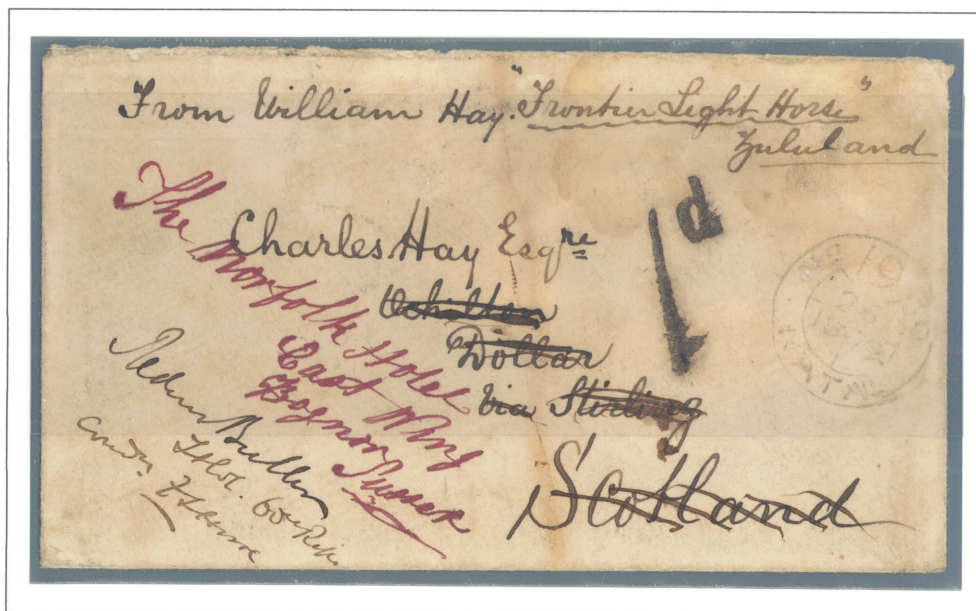 From William Hay. "Frontier Light Horse"
Zululand
Charles Hay Esqre
Ochilton
Dollar
Via Stirling
Scotland
1d
The Norfolk Hotel
East Wing
Bognor Sussex
Redvers Buller
60th Rifles
Comdg F L Horse
NATAL